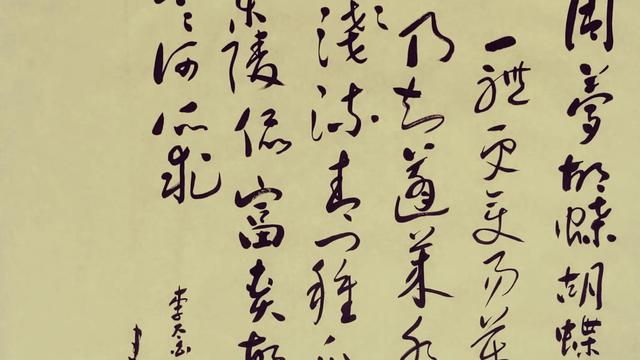 周夢胡蝶胡蝶
一體更變易萬
乃知蓬萊水
淺流青門種瓜
東陵侯富貴故
何所求
李太白